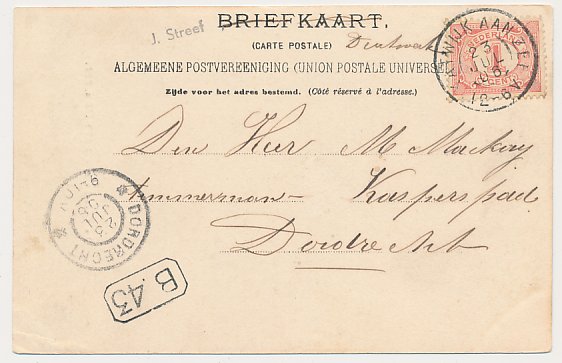 J. Streef
BRIEFKAART.
(CARTE POSTALE)
ALGEMEENE POSTVEREENIGING (UNION POSTALE UNIVERSELLE)
Zijde voor het adres bestemd. (Côté réservé à l'adresse.)
NEDERLAND
1
KATWIJK AAN ZEE
23 JUL 06
12-6
Den Heer M Mackay
Timmerman - Kasperspad
Dordrecht
DORDRECHT
23 JUL 06
B.43